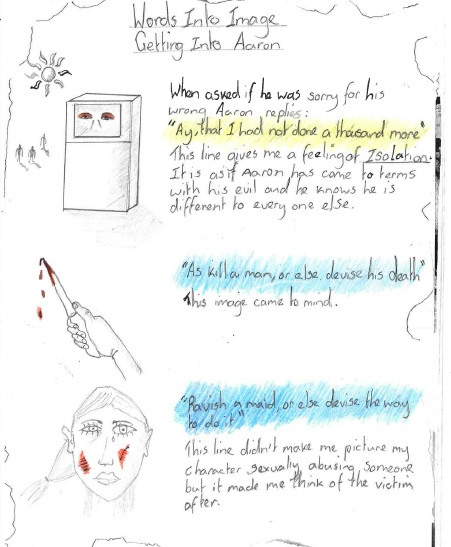 Words Into Image
Getting Into Aaron
When asked if he was sorry for his
wrong Aaron replies:
"Ay, that I had not done a thousand more"
This line gives me a feeling of Isolation.
It is as if Aaron has come to terms
with his evil and he knows he is
different to every one else.
"As kill a man, or else devise his death"
This image came to mind.
"Ravish a maid, or else devise the way
to do it"
This line didn't make me picture my
character sexually abusing someone
but it made me think of the victim
after.